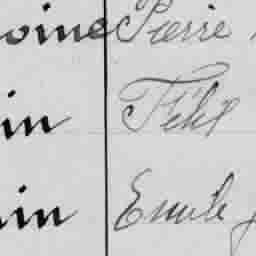 oine Pierre
in Félix
in Emile